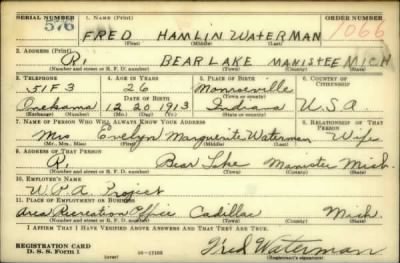 SERIAL NUMBER 1. NAME (Print) ORDER NUMBER
576 FRED HAMLIN WATERMAN 1066
(First) (Middle) (Last)
2. ADDRESS (Print)
R1 BEAR LAKE MANISTEE MICH
(Number and street or R. F. D. number) (Town) (County) (State)
3. TELEPHONE 4. AGE IN YEARS 5. PLACE OF BIRTH 6. COUNTRY OF CITIZENSHIP
51F3 26 Monroeville
DATE OF BIRTH
Onekama 12 20 1913 Indiana U.S.A
(Exchange) (Number) (Mo.) (Day) (Yr.) (State or country)
7. NAME OF PERSON WHO WILL ALWAYS KNOW YOUR ADDRESS 8. RELATIONSHIP OF THAT PERSON
Mrs Ed Evelyn Marguerite Waterman Wife
(Mr., Mrs., Miss) (First) (Middle) (Last)
9. ADDRESS OF THAT PERSON
R1 Bear Lake Manistee Mich.
(Number and street or R. F. D. number) (Town) (County) (State)
10. EMPLOYER'S NAME
W.P.A. Project
11. PLACE OF EMPLOYMENT OR BUSINESS
Area Recreation Office Cadillac Mich.
(Number and street or R. F. D. number) (Town) (County) (State)
I AFFIRM THAT I HAVE VERIFIED ABOVE ANSWERS AND THAT THEY ARE TRUE.
REGISTRATION CARD
D. S. S. Form 1 (over) Fred Waterman
(Registrant's signature)